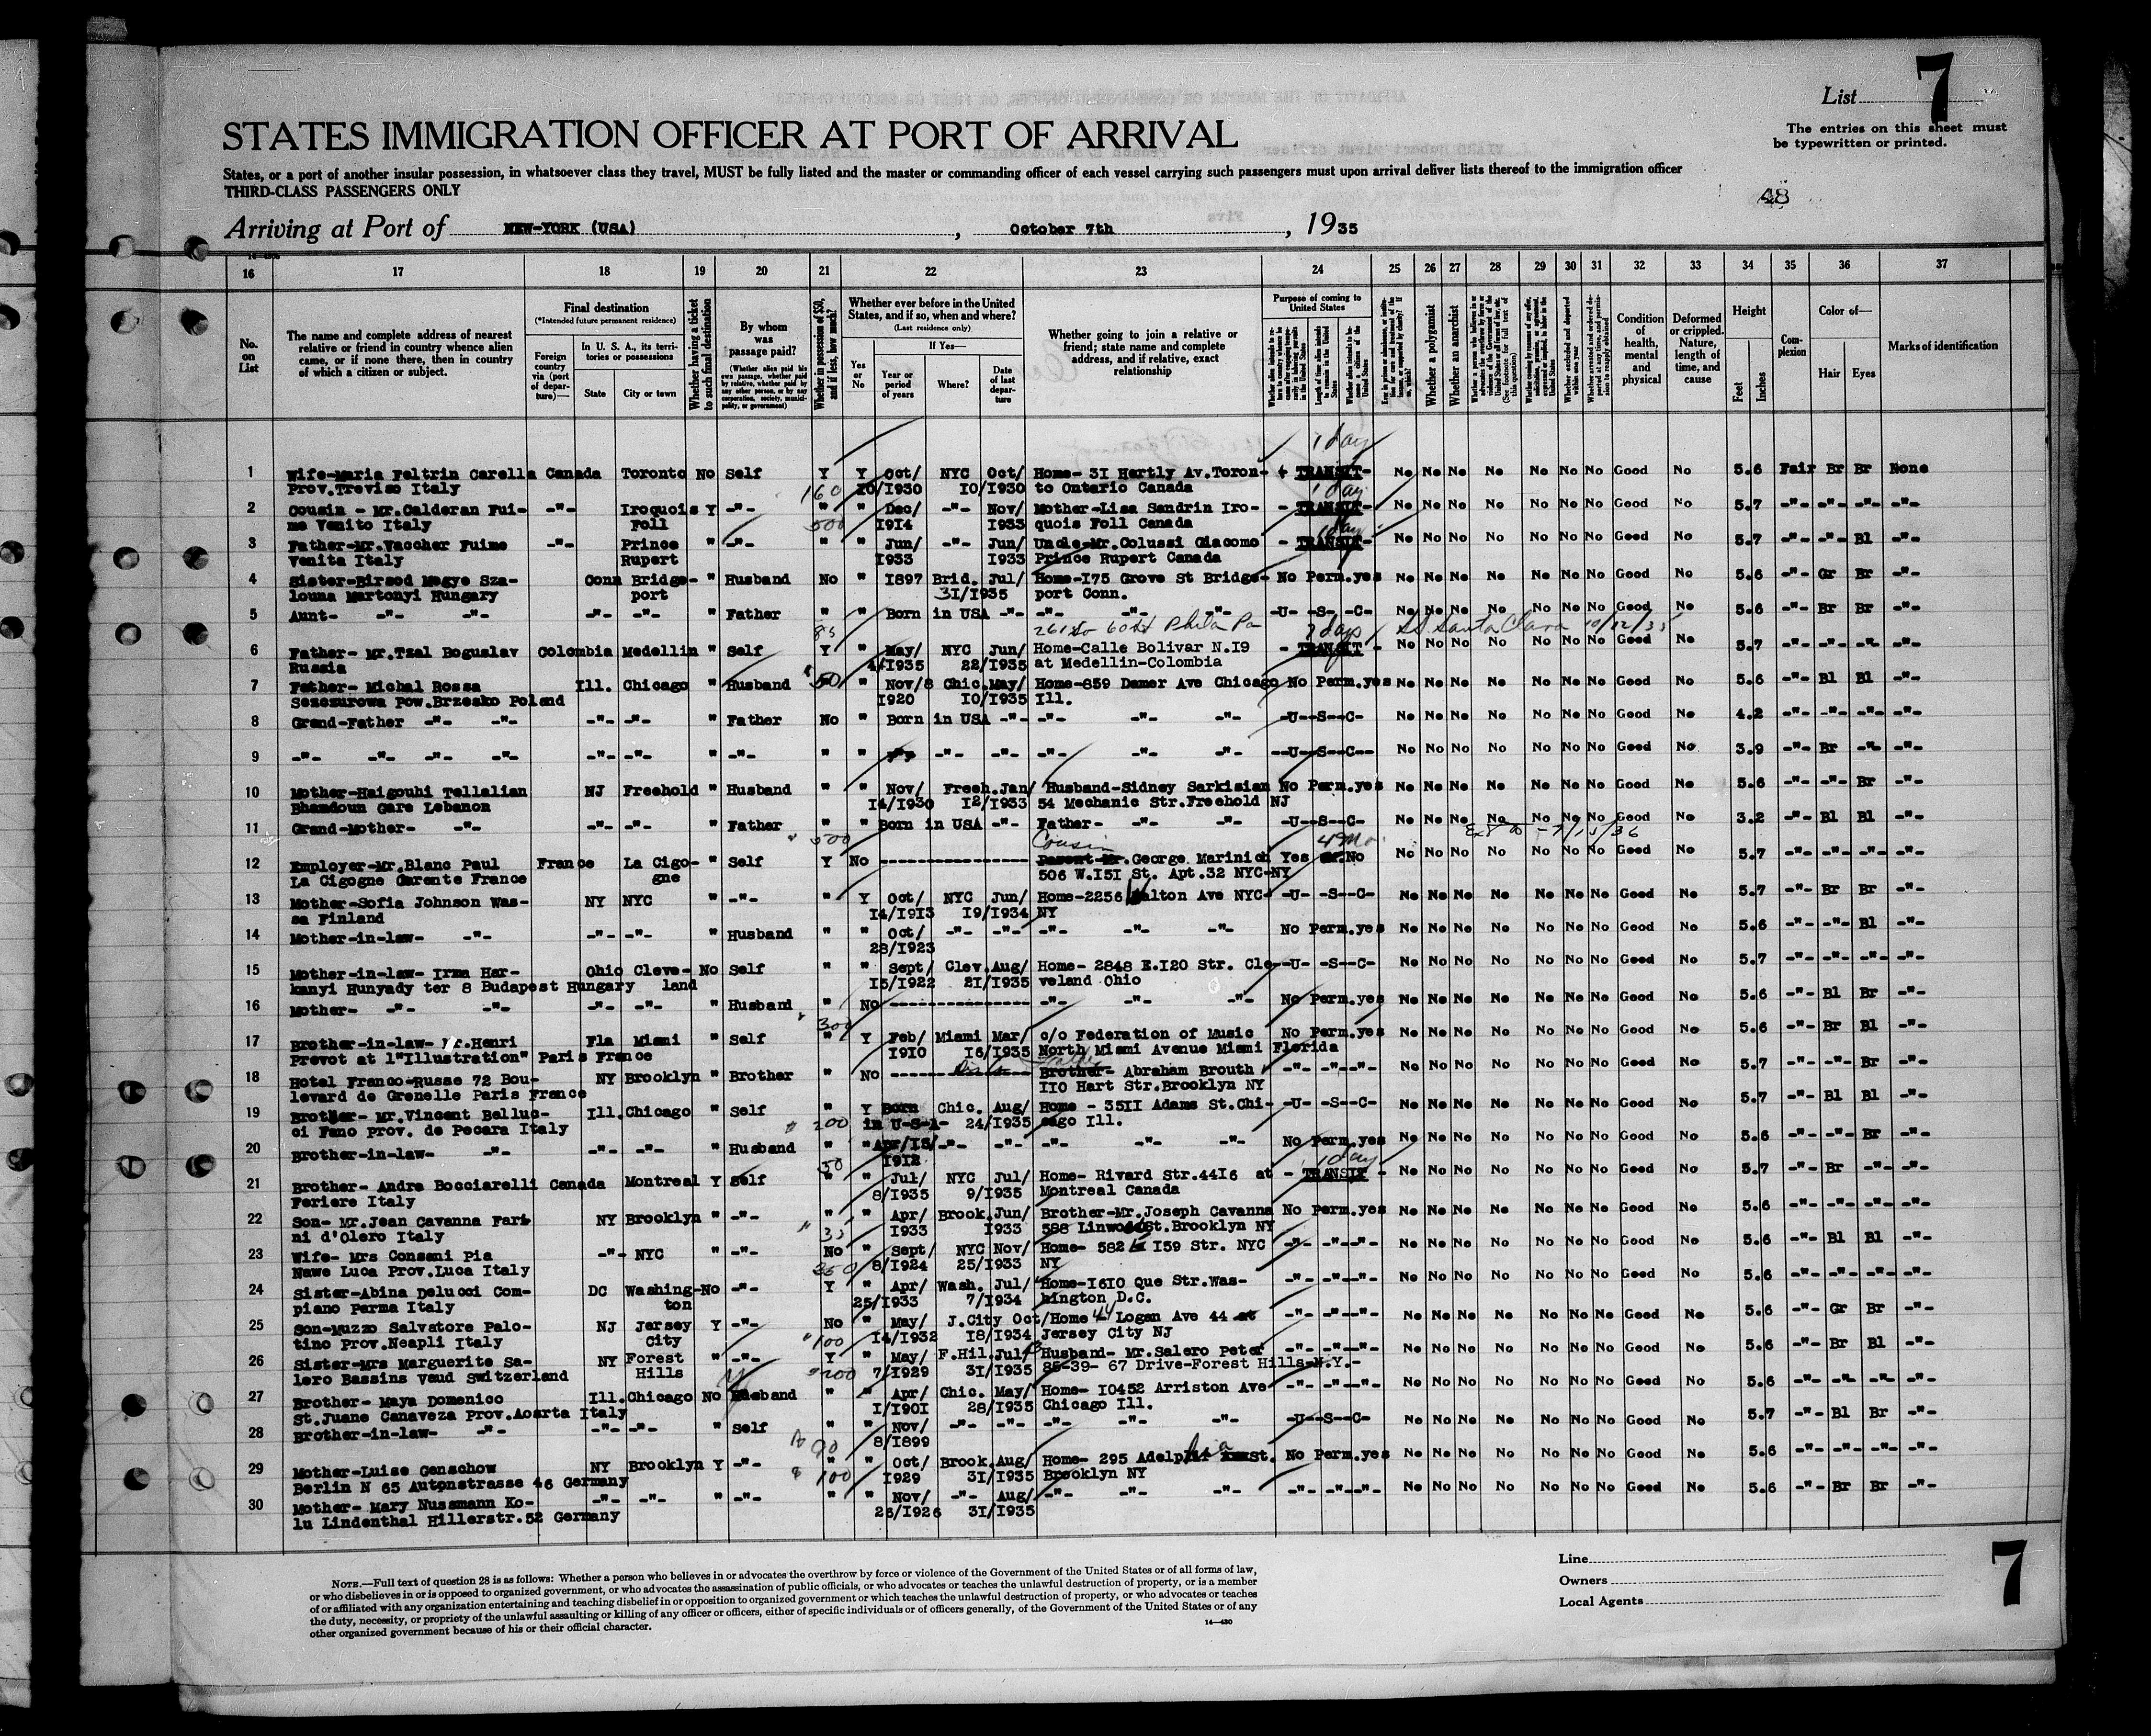 List 7
The entries on this sheet must
be typewritten or printed.
STATES IMMIGRATION OFFICER AT PORT OF ARRIVAL
States, or a port of another insular possession, in whatsoever class they travel, MUST be fully listed and the master or commanding officer of each vessel carrying such passengers must upon arrival deliver lists thereof to the immigration officer
THIRD-CLASS PASSENGERS ONLY
48
Arriving at Port of NEW-YORK (USA), October 7th, 1935
16 17 18 19 20 21 22 23 24 25 26 27 28 29 30 31 32 33 34 35 36 37
No. on List
The name and complete address of nearest relative or friend in country whence alien came, or if none there, then in country of which a citizen or subject.
Final destination
(*Intended future permanent residence)
Foreign country via (port of departure)—
In U. S. A., its territories or possessions
State City or town
Whether having a ticket to such final destination
By whom was passage paid?
(Whether alien paid his own passage, whether paid by relative, whether paid by any other person, or by any corporation, society, municipality, or government)
Whether in possession of $50, and if less, how much?
Whether ever before in the United States, and if so, when and where?
(Last residence only)
Yes or No
If Yes—
Year or period of years
Where?
Date of last departure
Whether going to join a relative or friend; state name and complete address, and if relative, exact relationship
Purpose of coming to United States
Whether a polygamist
Whether an anarchist
Condition of health, mental and physical
Deformed or crippled. Nature, length of time, and cause
Height
Feet Inches
Complexion
Color of—
Hair Eyes
Marks of identification
1 day
1 Wife-Maria Feltrin Carella Canada Toronto No Self Y Y Oct/ NYC Oct/ Home- 3I Hertly Av.Toron- TRANSIT- No No No No No No No Good No 5.6 Fair Br Br None
Prov.Treviso Italy 160 I0/I930 I0/I930 to Ontario Canada 1 day
2 Cousin - Mr.Calderan Fui- -"- Iroquois Y -"- " " Dec/ -"- Nov/ Mother-Lisa Sandrin Iro- - TRANSIT- No No No No No No No Good No 5.7 -"- -"- -"- -"-
me Venito Italy Foll 500 I914 I933 quois Foll Canada 1 day
3 Father-Mr.Vaccher Fuime -"- Prince " -"- " " Jun/ -"- Jun/ Uncle-Mr.Colussi Giacomo - TRANSIT- No No No No No No No Good No 5.7 -"- -"- Bl -"-
Venita Italy Rupert I933 I933 Prince Rupert Canada
4 Sister-Birsod Megye Sza- Conn Bridge- " Husband No " I897 Brid. Jul/ Home-I75 Grove St Bridge- No Perm.yes No No No No No No No Good No 5.6 -"- Gr Br -"-
louna Martonyi Hungary port 3I/I935 port Conn.
5 Aunt- -"- -"- -"- -"- " Father " " Born in USA -"- -"- -"- -"- -U- -S- -C- No No No No No No No Good No 5.6 -"- Br Br -"-
85 261 So 60 St Phila Pa 7 days SS Santa Clara 10/12/35
6 Father- Mr.Tzal Boguslav Colombia Medellin " Self Y " May/ NYC Jun/ Home-Calle Bolivar N.I9 - TRANSIT - No No No No No No No Good No 5.7 -"- -"- -"- -"-
Russia 4/I935 22/I935 at Medellin-Colombia
7 Father- Michal Rossa Ill. Chicago " Husband 50 " Nov/8 Chic.May/ Home-859 Damer Ave Chicago No Perm.yes No No No No No No No Good No 5.6 -"- Bl Bl -"-
Sezezurowa Pow.Brzesko Poland I920 I0/I935 Ill.
8 Grand-Father -"- -"- -"- -"- " Father No " Born in USA -"- -"- -"- -"- -U--S--C- No No No No No No No Good No 4.2 -"- -"- -"- -"-
9 -"- -"- -"- -"- -"- -"- " -"- " " -"- -"- -"- -"- -"- -"- --U--S--C-- No No No No No No No Good No 3.9 -"- Br -"- -"-
10 Mother-Haigouhi Tellalian NJ Freehold " Husband " " Nov/ Freeh.Jan/ Husband-Sidney Sarkisian No Perm.yes No No No No No No No Good No 5.6 -"- -"- Br -"-
Bhamdoun Gare Lebanon I4/I930 I2/I933 54 Mechanic Str.Freehold NJ
11 Grand-Mother- -"- -"- -"- " Father " " Born in USA -"- Father- -"- -"- -U--S--C- No No No No No No No Good No 3.2 -"- Bl Bl -"-
500 Cousin 4 Mo. Ext to -7/15/36
12 Employer-Mr.Blanc Paul France La Cigo- " Self Y No ---------------- Parent-Mr.George Marinich Yes No No No No No No No No Good No 5.7 -"- -"- -"- -"-
La Cigogne Carente France gne 506 W.I5I St. Apt.32 NYC-NY
13 Mother-Sofia Johnson Was- NY NYC " -"- " Y Oct/ NYC Jun/ Home-2256 Walton Ave NYC -U- -S--C- No No No No No No No Good No 5.7 -"- Br Br -"-
sa Finland I4/I913 I9/I934 NY
14 Mother-in-law- -"- -"- -"- " Husband " " Oct/ -"- -"- -"- -"- -"- No Perm.yes No No No No No No No Good No 5.6 -"- -"- Bl -"-
28/I923
15 Mother-in-law- Irma Har- Ohio Cleve- No Self " " Sept/ Clev.Aug/ Home- 2848 E.I20 Str. Cle- -U- -S--C- No No No No No No No Good No 5.7 -"- -"- -"- -"-
kanyi Hunyady ter 8 Budapest Hungary land I5/I922 2I/I935 veland Ohio
16 Mother- -"- -"- -"- -"- " Husband " No ---------------- -"- -"- -"- No Perm.yes No No No No No No No Good No 5.6 -"- Bl Br -"-
300
17 Brother-in-law- Mr.Henri Fla Miami " Self " Y Feb/ Miami Mar/ c/o Federation of Music No Perm.yes No No No No No No No Good No 5.6 -"- Br Bl -"-
Prevot at l"Illustration" Paris France I910 I6/I935 North Miami Avenue Miami Florida
18 Hotel Franco-Russe 72 Bou- NY Brooklyn " Brother " No ---------------- Brother- Abraham Brouth -"- -"--"- No No No No No No No Good No 5.7 -"- -"- Br -"-
levard de Grenelle Paris France II0 Hart Str.Brooklyn NY
19 Brother- Mr.Vincent Belluc- Ill.Chicago " Self " Y Born Chic. Aug/ Home - 35II Adams St.Chi- -U- -S--C- No No No No No No No Good No 5.7 -"- Bl Bl -"-
ci Fano prov. de Pecara Italy 200 in U-S-A- 24/I935 cago Ill.
20 Brother-in-law- -"- -"- -"- " Husband " " Apr/I5/ -"- -"- -"- -"- -"- No Perm.yes No No No No No No No Good No 5.6 -"- -"- Br -"-
50 I9I2 1 day
21 Brother- Andre Bocciarelli Canada Montreal Y Self " " Jul/ NYC Jul/ Home- Rivard Str.44I6 at - TRANSIT - No No No No No No No Good No 5.7 -"- Br -"- -"-
Feriere Italy 8/I935 9/I935 Montreal Canada
22 Son- Mr.Jean Cavanna Fari- NY Brooklyn " -"- " " Apr/ Brook.Jun/ Brother-Mr.Joseph Cavanna No Perm.yes No No No No No No No Good No 5.6 -"- -"- -"- -"-
ni d'Olero Italy 35 I933 I933 588 Linwood St.Brooklyn NY
23 Wife- Mrs Consani Pia -"- NYC " -"- No " Sept/ NYC Nov/ Home- 582 I59 Str. NYC -"- -"--"- No No No No No No No Good No 5.6 -"- Bl Bl -"-
Nawe Luca Prov.Luca Italy 350 8/I924 25/I933 NY
24 Sister-Abina Delucci Com- DC Washing- No -"- Y " Apr/ Wash. Jul/ Home-I6I0 Que Str.Was- -"- -"--"- No No No No No No No Good No 5.6 -"- -"- -"- -"-
piano Parma Italy ton 25/I933 7/I934 hington D.C.
25 Son-Muzzo Salvatore Palo- NJ Jersey Y -"- No " May/ J.City Oct/ Home 44 Logan Ave 44 at -"- -"--"- No No No No No No No Good No 5.6 -"- Gr Br -"-
tino Prov.Neapli Italy City 100 I4/I932 I8/I934 Jersey City NJ
26 Sister-Mrs Marguerite Sa- NY Forest " -"- Y " May/ F.Hil.Jul/ Husband- Mr.Salero Peter -"- -"--"- No No No No No No No Good No 5.6 -"- Br Bl -"-
lero Bassins Vaud Switzerland Hills 200 7/I929 3I/I935 85-39- 67 Drive-Forest Hills-N.Y.-
27 Brother- Maya Domenico Ill.Chicago No Husband " " Apr/ Chic. May/ Home- I0452 Arriston Ave -"- -"--"- No No No No No No No Good No 5.6 -"- -"- -"- -"-
St.Juane Canaveza Prov.Aoarta Italy I/I90I 28/I935 Chicago Ill.
28 Brother-in-law- -"- -"- -"- " Self " " Nov/ -"- -"- -"- -"- -"- -U--S--C- No No No No No No No Good No 5.7 -"- Bl Br -"-
90 8/I899
29 Mother-Luise Genschow NY Brooklyn Y -"- " " Oct/ Brook.Aug/ Home- 295 Adelphia St. No Perm.yes No No No No No No No Good No 5.6 -"- -"- -"- -"-
Berlin N 65 Autonstrasse 46 Germany $ 100 I929 3I/I935 Brooklyn NY
30 Mother- Mary Nussmann Ko- -"- -"- " -"- " " Nov/ -"- Aug/ -"- -"- -"- -"- -"--"- No No No No No No No Good No 5.6 -"- Br Br -"-
lu Lindenthal Hillerstr.52 Germany 26/I926 3I/I935
NOTE.—Full text of question 28 is as follows: Whether a person who believes in or advocates the overthrow by force or violence of the Government of the United States or of all forms of law,
or who disbelieves in or is opposed to organized government, or who advocates the assassination of public officials, or who advocates or teaches the unlawful destruction of property, or is a member
of or affiliated with any organization entertaining and teaching disbelief in or opposition to organized government or which teaches the unlawful destruction of property, or who advocates or teaches
the duty, necessity, or propriety of the unlawful assaulting or killing of any officer or officers, either of specific individuals or of officers generally, of the Government of the United States or of any
other organized government because of his or their official character.
14—430
Line
Owners
Local Agents
7